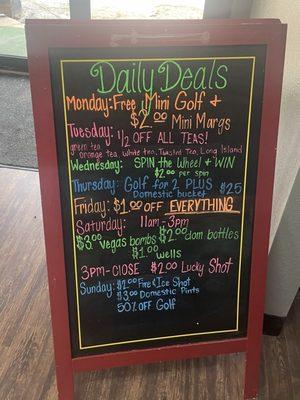 Daily Deals
Monday: Free Mini Golf &
$2.00 Mini Margs
Tuesday: 1/2 OFF ALL TEAS!
green tea, orange tea, white tea, Twisted Tea, Long Island
Wednesday: SPIN the Wheel & WIN
$2.00 per spin
Thursday: Golf for 2 PLUS $25
Domestic bucket
Friday: $1.00 OFF EVERYTHING
Saturday: 11am-3pm
$3.00 Vegas bombs $2.00 dom bottles
$1.00 wells
3PM-CLOSE $2.00 Lucky Shot
Sunday: $2.00 Fire & Ice Shot
$3.00 Domestic Pints
50% OFF Golf